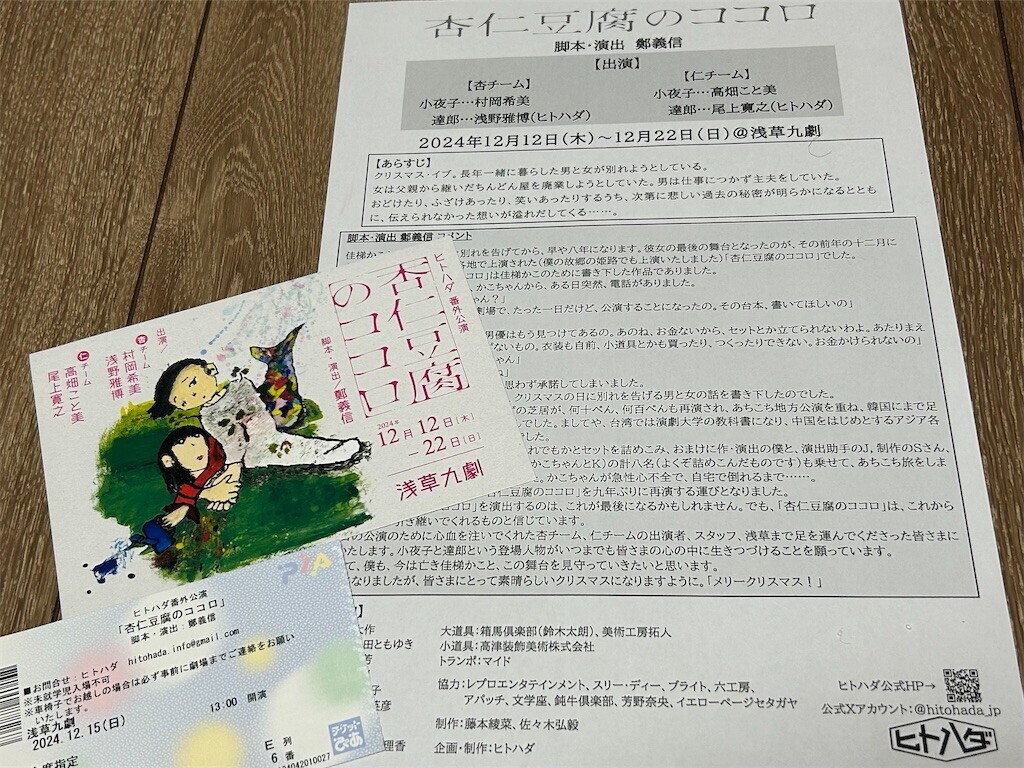 杏仁豆腐のココロ
脚本・演出 鄭義信
【出演】
【杏チーム】
小夜子…村岡希美
達郎…浅野雅博(ヒトハダ)
【仁チーム】
小夜子…高畑こと美
達郎…尾上寛之(ヒトハダ)
2024年12月12日(木)~12月22日(日)@浅草九劇
【あらすじ】
クリスマス・イブ。長年一緒に暮らした男と女が別れようとしている。
女は父親から継いだちんどん屋を廃業しようとしていた。男は仕事につかず主夫をしていた。
おどけたり、ふざけあったり、笑いあったりするうち、次第に悲しい過去の秘密が明らかになるととも
に、伝えられなかった想いが溢れだしてくる……。
脚本・演出 鄭義信 コメント
佳梯かこ
別れを告げてから、早や八年になります。彼女の最後の舞台となったのが、その前年の十二月に
各地で上演された(僕の故郷の姫路でも上演いたしました)「杏仁豆腐のココロ」でした。
ココロ」は佳梯かこのために書き下した作品でありました。
かこちゃんから、ある日突然、電話がありました。
ちゃん?」
劇場で、たった一日だけど、公演することになったの。その台本、書いてほしいの」
男優はもう見つけてあるの。あのね、お金ないから、セットとか立てられないわよ。あたりまえ
ないもの。衣装も自前、小道具とかも買ったり、つくったりできない。お金かけられないの」
ちゃん」
ね」
思わず承諾してしまいました。
クリスマスの日に別れを告げる男と女の話を書き下したのでした。
の芝居が、何十ぺん、何百ぺんも再演され、あちこち地方公演を重ね、韓国にまで足
でした。ましてや、台湾では演劇大学の教科書になり、中国をはじめとするアジア各
でした。
れでもかとセットを詰めこみ、おまけに作・演出の僕と、演出助手のJ、制作のSさん、
かこちゃんとK)の計八名(よくぞ詰めこんだものです)も乗せて、あちこち旅をしま
。かこちゃんが急性心不全で、自宅で倒れるまで……。
杏仁豆腐のココロ」を九年ぶりに再演する運びとなりました。
ココロ」を演出するのは、これが最後になるかもしれません。でも、「杏仁豆腐のココロ」は、これから
引き継いでくれるものと信じています。
の公演のために心血を注いでくれた杏チーム、仁チームの出演者、スタッフ、浅草まで足を運んでくださった皆さまに
いたします。小夜子と達郎という登場人物がいつまでも皆さまの心の中に生きつづけることを願っています。
て、僕も、今は亡き佳梯かこと、この舞台を見守っていきたいと思います。
なりましたが、皆さまにとって素晴らしいクリスマスになりますように。「メリークリスマス!」
大道具:箱馬俱楽部(鈴木太朗)、美術工房拓人
田ともゆき
小道具:高津装飾美術株式会社
トランポ:マイド
協力:レプロエンタテインメント、スリー・ディー、ブライト、六工房、
アパッチ、文学座、鈍牛俱楽部、芳野奈央、イエローページセタガヤ
制作:藤本綾菜、佐々木弘毅
理香
企画・制作:ヒトハダ
ヒトハダ公式HP→
公式Xアカウント:@hitohada_jp
ヒトハダ
ヒトハダ番外公演
「杏仁豆腐
のココロ」
脚本・演出/鄭義信
2024年
12月12日(木)
-22日(日)
浅草九劇
出演/
杏チーム
村岡希美
浅野雅博
仁チーム
高畑こと美
尾上寛之
PIA
ヒトハダ番外公演
「杏仁豆腐のココロ」
脚本・演出:鄭義信
■お問合せ:ヒトハダ hitohada.info@gmail.com
※未就学児入場不可
※車椅子でお越しの場合は必ず事前に劇場までご連絡をお願い
いたします。
浅草九劇
2024.12.15(日) 13:00 開演
E 列
6 番
チケットぴあ